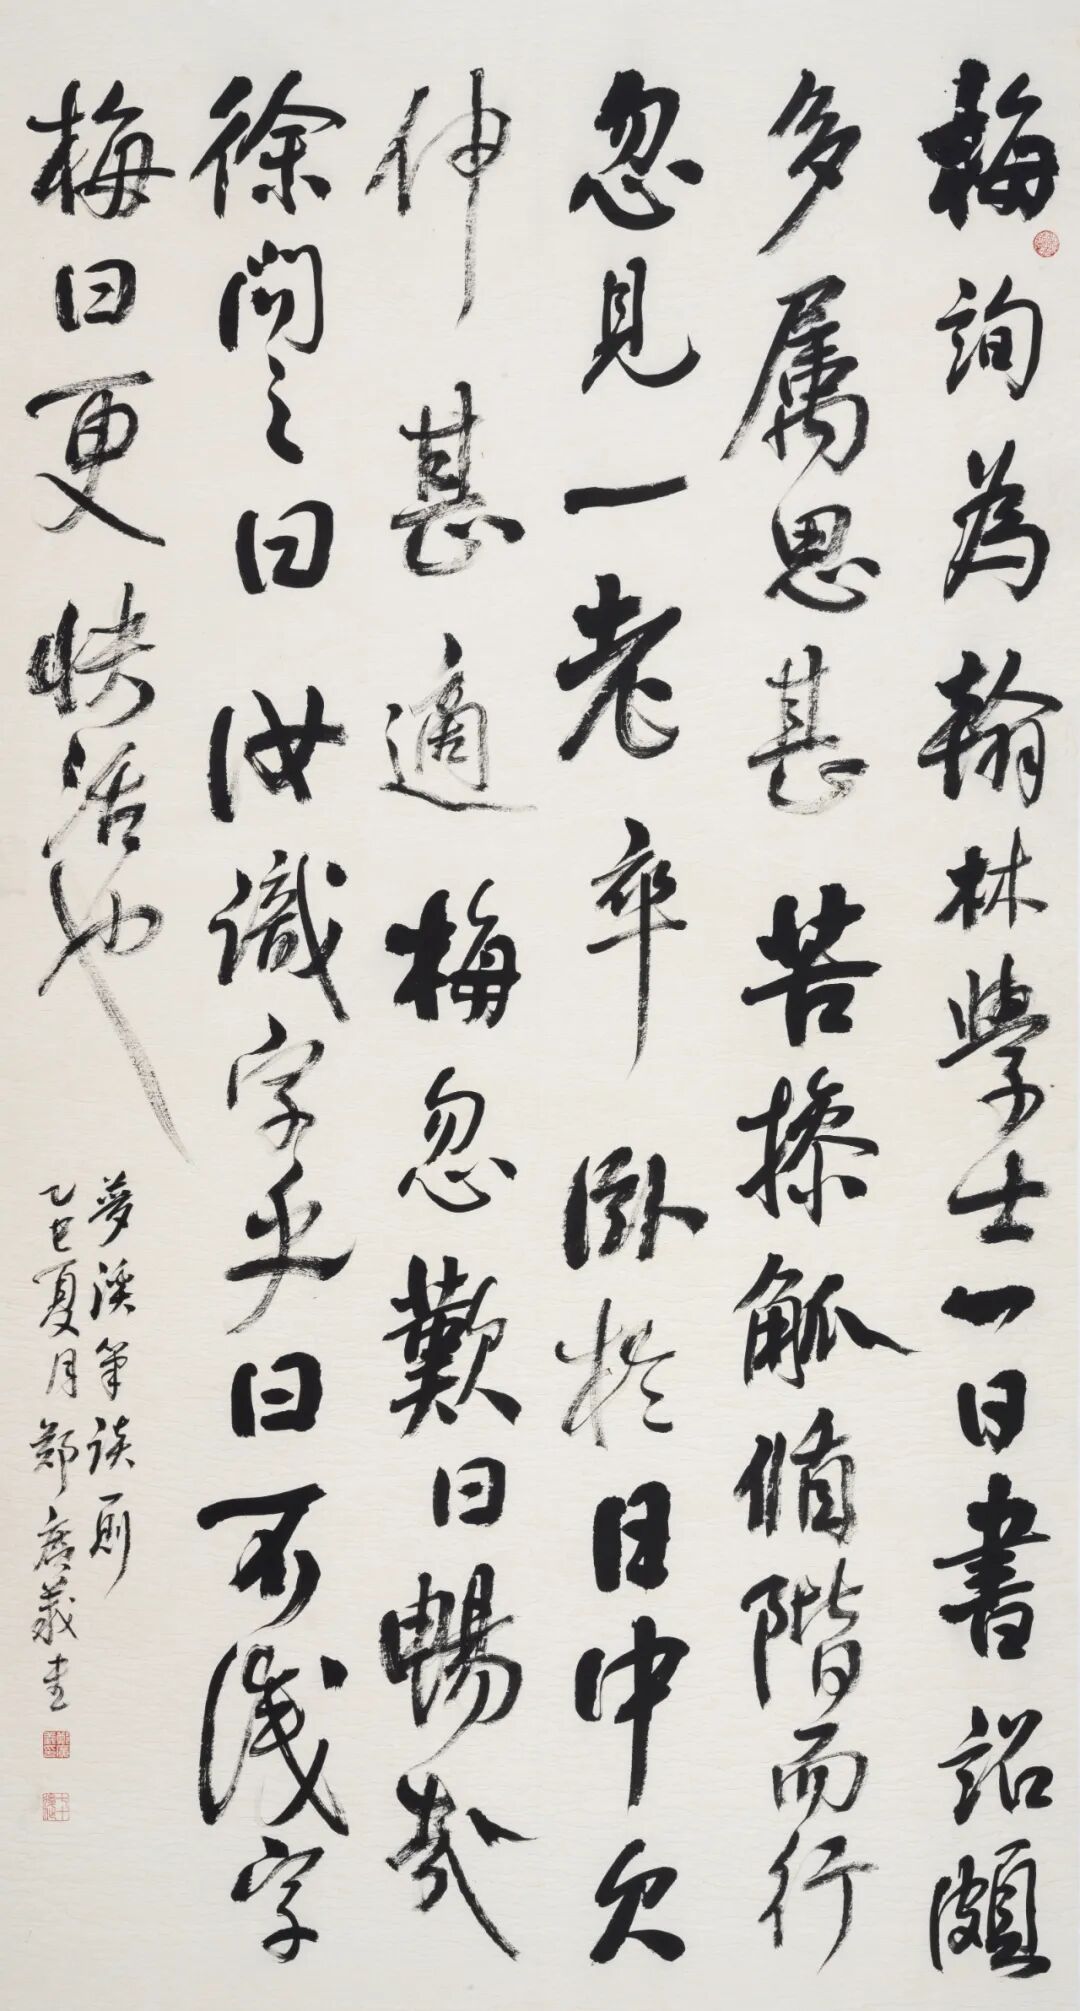 梅詢為翰林學士一日書詔頗
多属思甚苦操觚循階而行
忽見一老卒卧於日中欠
伸甚適梅忽歎曰暢哉
徐問之曰汝識字乎曰不識字
梅曰更快活也
夢溪筆談一則
乙巳夏月鄭廣義書